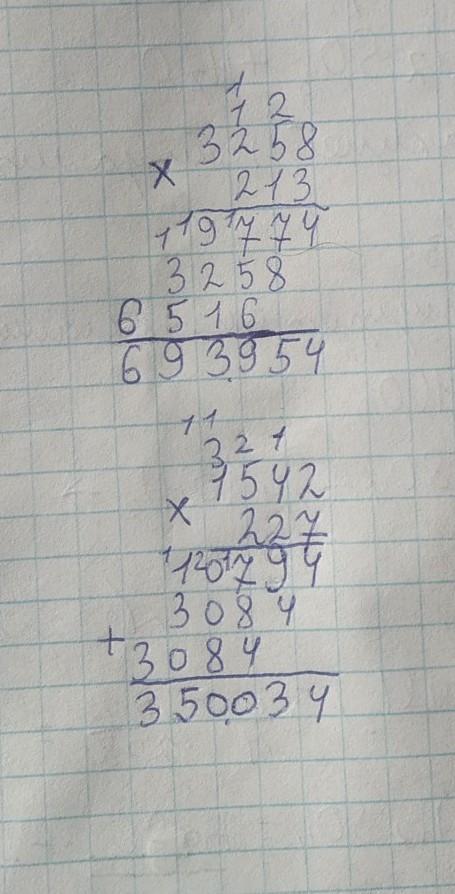 1
1 2
3258
× 213
1 1 9 1 7 7 4
3258
6516
693.954
1 1
3 2 1
1542
× 227
1 1 2 0 1 7 9 4
3084
+ 3084
350.034